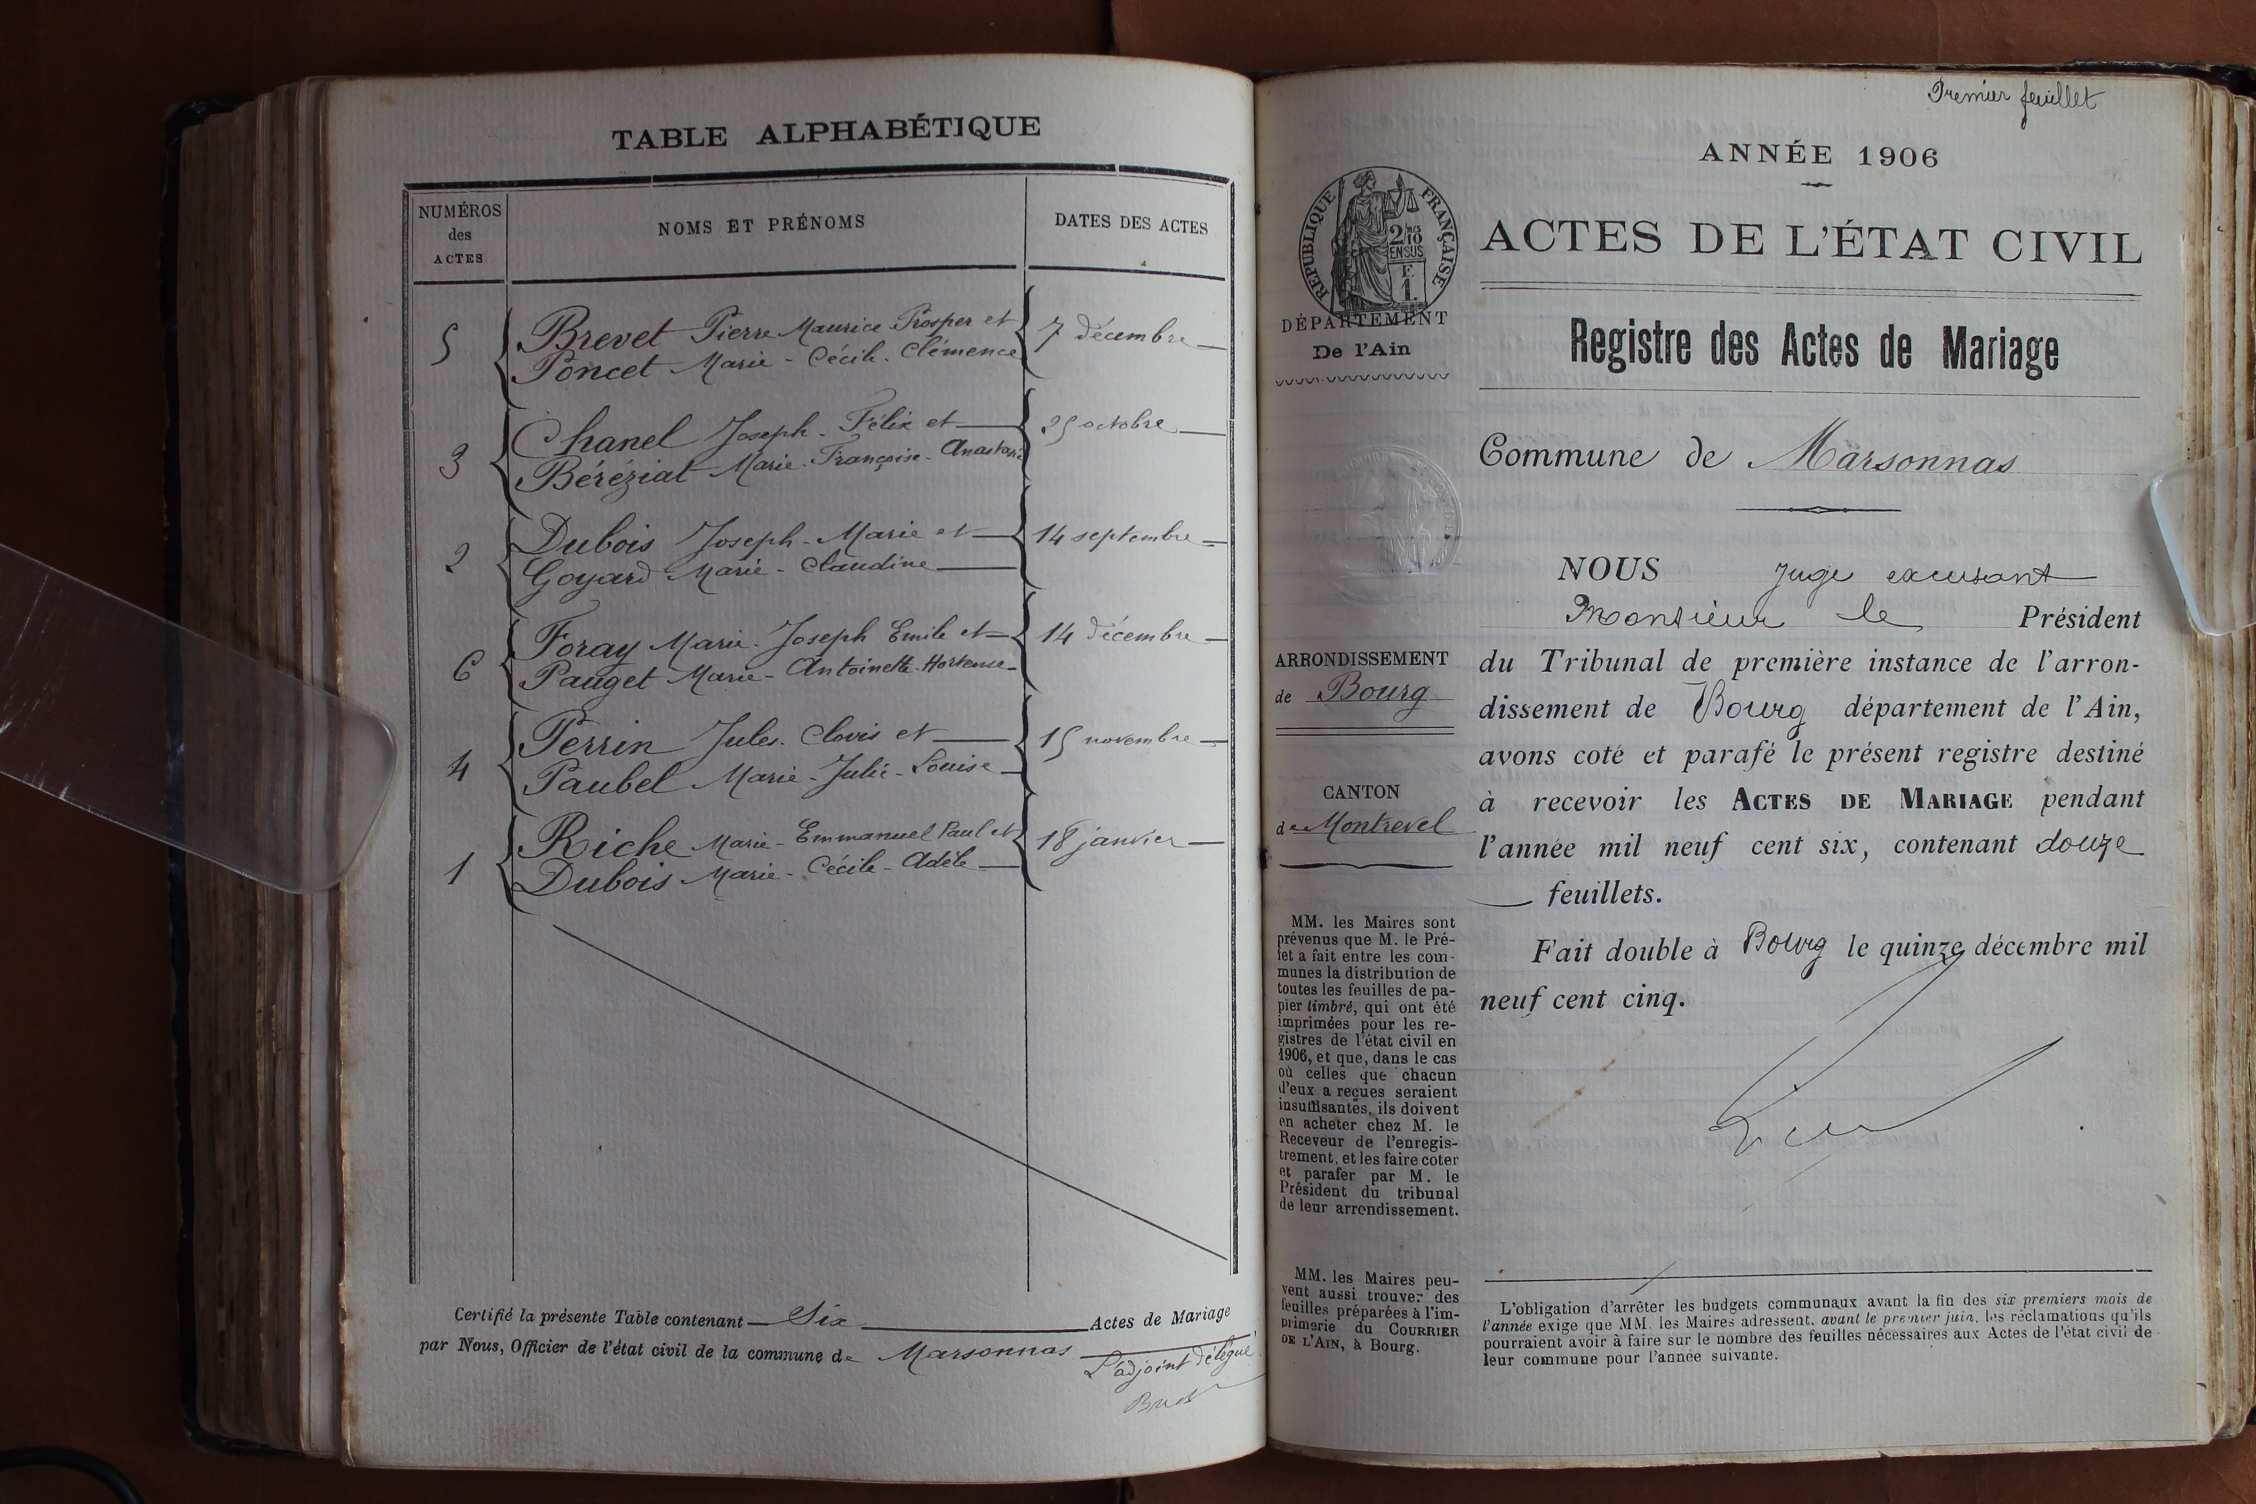 TABLE ALPHABÉTIQUE
NUMÉROS
des
ACTES
NOMS ET PRÉNOMS
DATES DES ACTES
5 Brevet Pierre Maurice Prosper et 7 décembre
Poncet Marie - Cécile - Clémence
3 Chanel Joseph - Félix et 25 octobre
Béréziat Marie - Françoise - Anastasie
2 Dubois Joseph - Marie et 14 septembre
Goyard Marie - Claudine
6 Foray Marie - Joseph Emile et 14 décembre
Pauget Marie - Antoinette - Hortense
4 Perrin Jules - Clovis et 15 novembre
Paubel Marie - Julie - Louise
1 Riche Marie - Emmanuel Paul et 18 janvier
Dubois Marie - Cécile - Adèle
Certifié la présente Table contenant Six Actes de Mariage
par Nous, Officier de l'état civil de la commune de Marsonnas
L'adjoint délégué
Premier feuillet
ANNÉE 1906
RÉPUBLIQUE FRANÇAISE
2/10
EN SUS
F.
1.
DÉPARTEMENT
De l'Ain
ACTES DE L'ÉTAT CIVIL
Registre des Actes de Mariage
Commune de Marsonnas
NOUS Juge excusant
Monsieur le Président
du Tribunal de première instance de l'arron-
dissement de Bourg département de l'Ain,
avons coté et parafé le présent registre destiné
à recevoir les ACTES DE MARIAGE pendant
l'année mil neuf cent six, contenant douze
feuillets.
Fait double à Bourg le quinze décembre mil
neuf cent cinq.
ARRONDISSEMENT
de Bourg
CANTON
de Montrevel
MM. les Maires sont
prévenus que M. le Pré-
fet a fait entre les com-
munes la distribution de
toutes les feuilles de pa-
pier timbré, qui ont été
imprimées pour les re-
gistres de l'état civil en
1906, et que, dans le cas
où celles que chacun
d'eux a reçues seraient
insuffisantes, ils doivent
en acheter chez M. le
Receveur de l'enregis-
trement, et les faire coter
et parafer par M. le
Président du tribunal
de leur arrondissement.
MM. les Maires peu-
vent aussi trouver des
feuilles préparées à l'im-
primerie du COURRIER
DE L'AIN, à Bourg.
L'obligation d'arrêter les budgets communaux avant la fin des six premiers mois de
l'année exige que MM. les Maires adressent, avant le premier juin, les réclamations qu'ils
pourraient avoir à faire sur le nombre des feuilles nécessaires aux Actes de l'état civil de
leur commune pour l'année suivante.